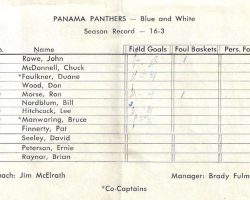 PANAMA PANTHERS — Blue and White
Season Record — 16-3
Name Field Goals Foul Baskets Pers. Fo
Rowe, John 1
McDonnell, Chuck
*Faulkner, Duane
Wood, Don
Morse, Ron 1
Nordblum, Bill
Hitchcock, Lee
*Manworing, Bruce
Finnerty, Pat
Seeley, David
Peterson, Ernie
Raynor, Brian
oach: Jim McElrath Manager: Brady Fulm
*Co-Captains